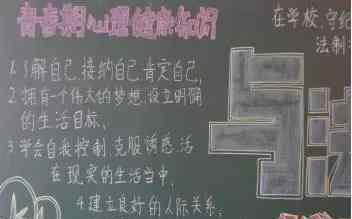 青春期心理健康知识
1.了解自己,接纳自己,肯定自己,
2.拥有一个伟大的梦想,设立明确
的生活目标、
3.学会自我控制,克服诱惑,活
在现实的生活当中,
4.建立良好的人际关系,
在学校,守纪
法制
与法